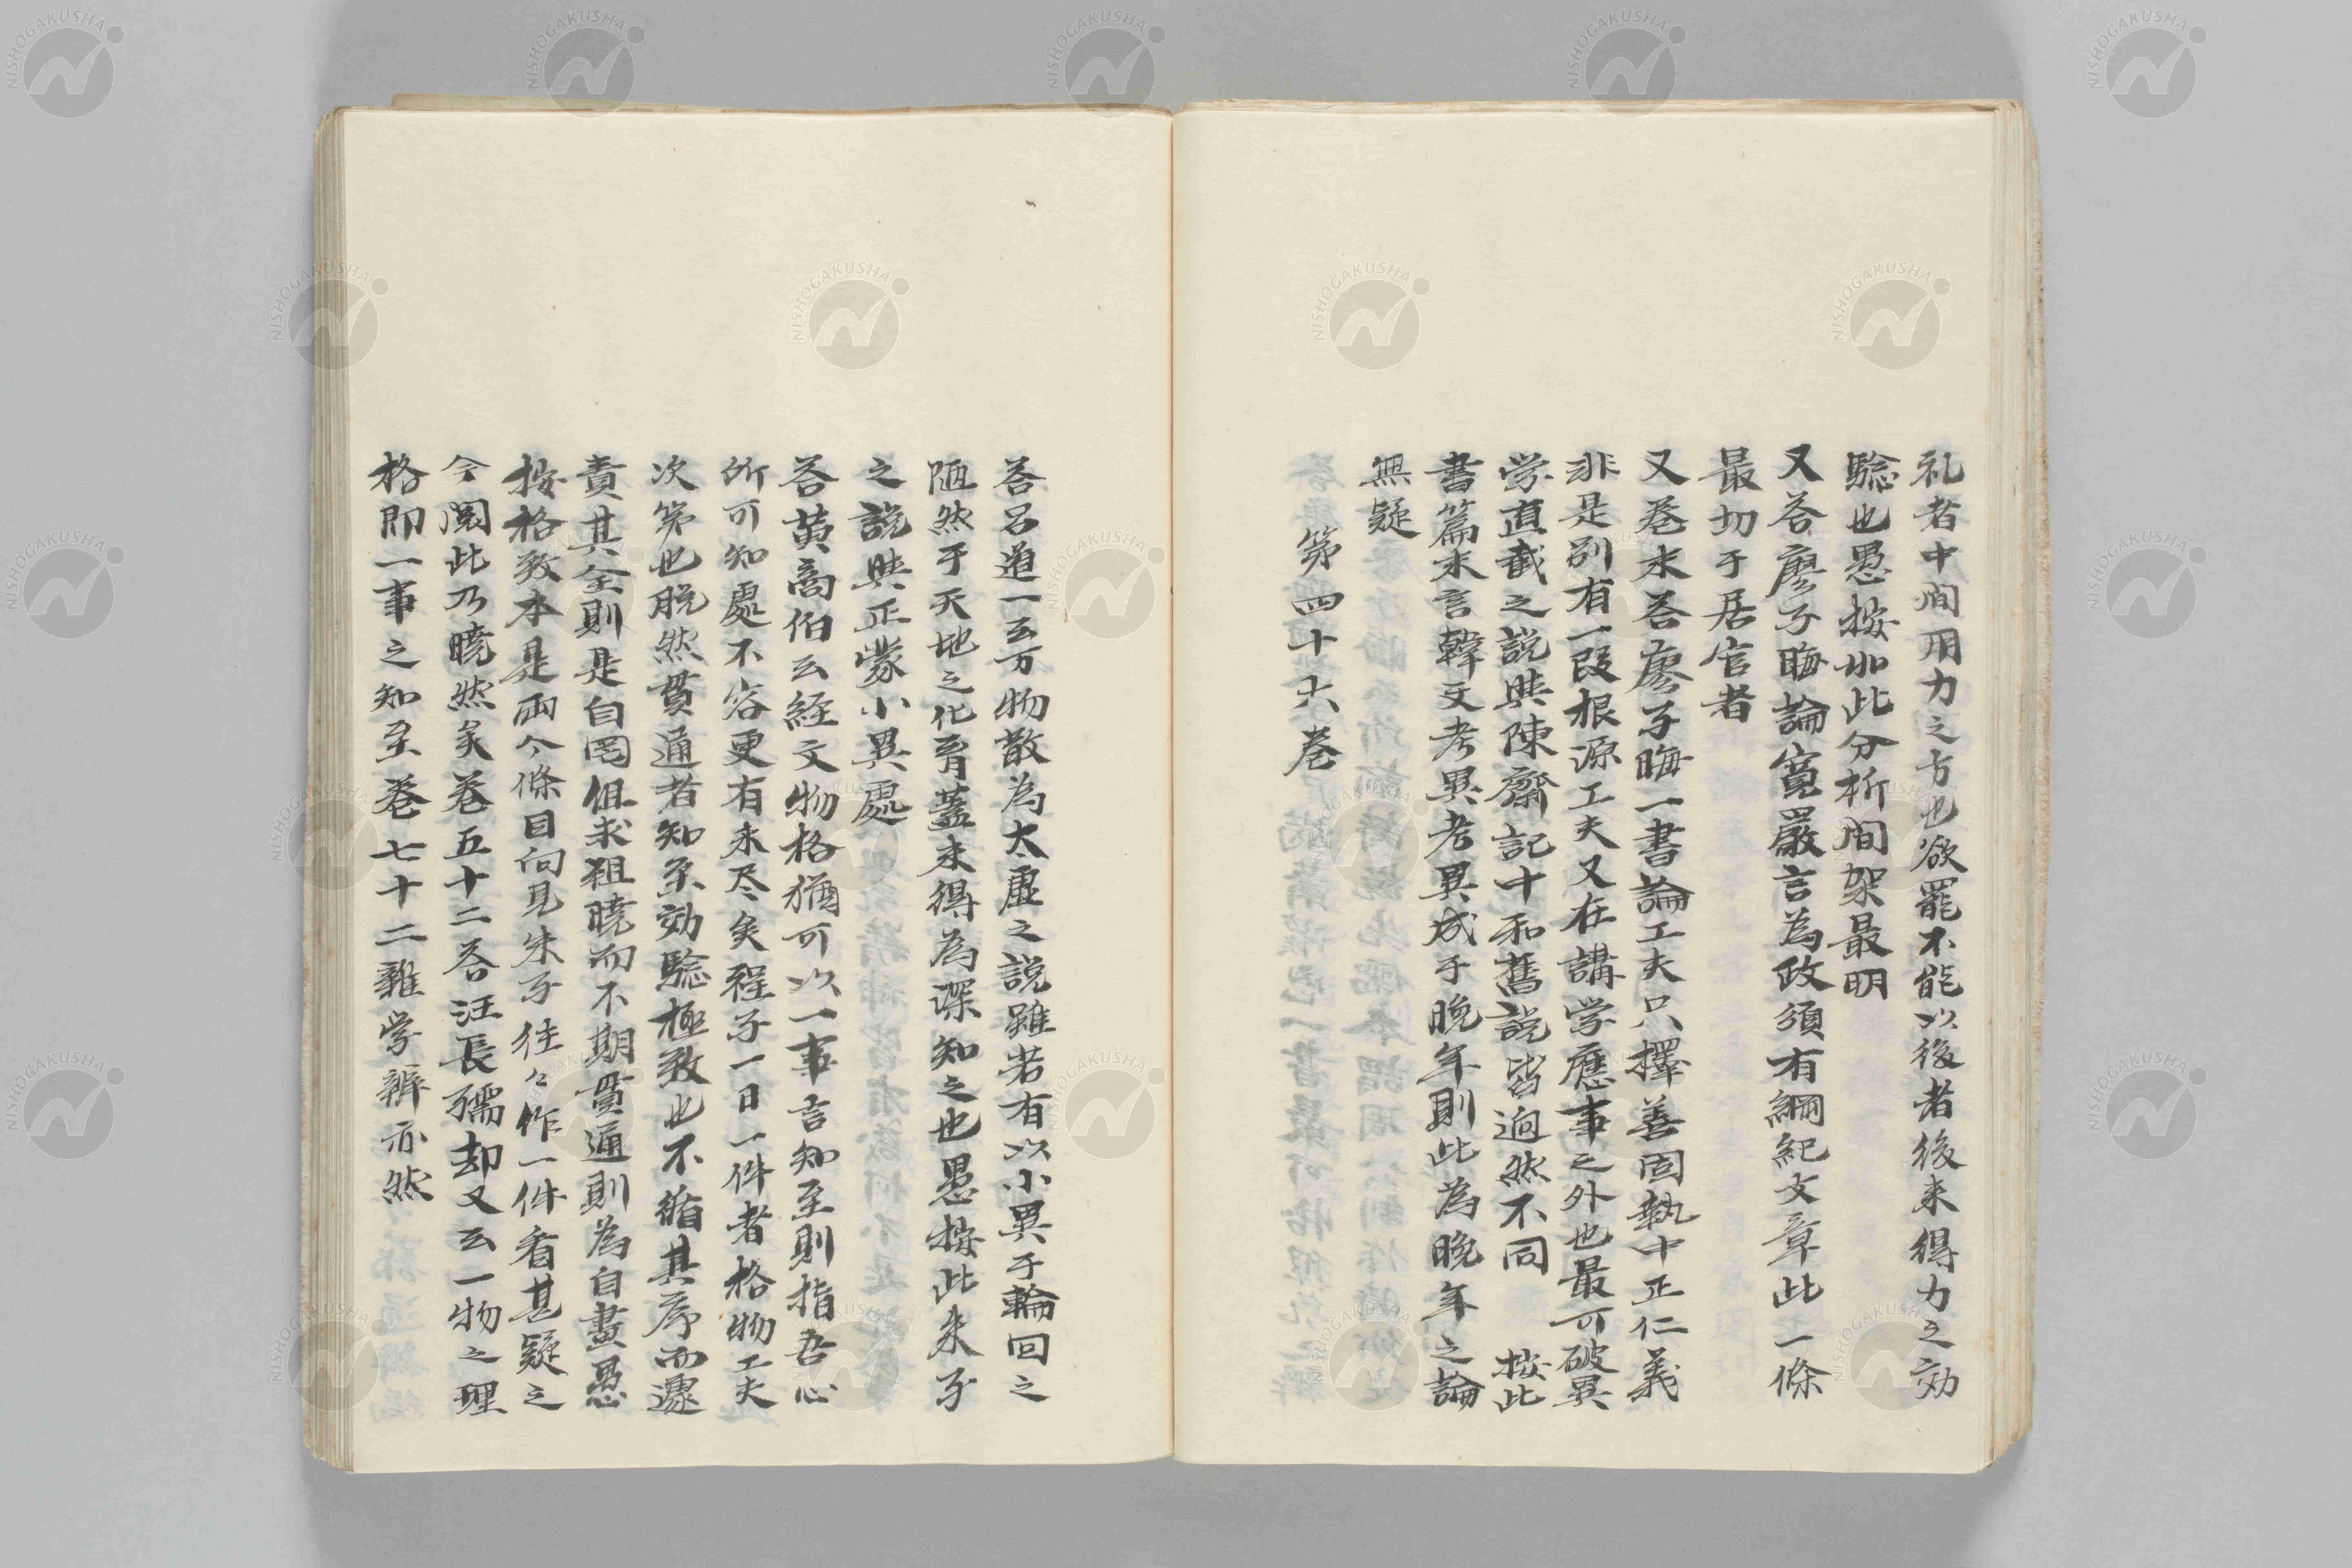 礼者中間用力之方也欲罷不能以後者後来得力之効
驗也愚按如此分析間架最明
又答廖子晦論寛嚴言為政須有綱紀文章此一條
最切于居官者
又巻末答廖子晦一書論工夫只擇善固執中正仁義
非是別有一段根源工夫又在講学應事之外也最可破異
学直截之說與陳齋記十和舊說皆迥然不同 按此
書篇末言韓文考異考異成于晩年則此為晩年之論
無疑
第四十六巻
答呂道一云万物散為太虛之説雖若有以小異于輪回之
陋然于天地之化育蓋未得為深知之也愚按此朱子
之説與正蒙小異處
答黄商伯云経文物格猶可以一事言知至則指吾心
所可知處不容更有未尽矣程子一日一件者格物工夫
次第也脱然貫通者知至効驗極致也不循其序而遽
責其全則是自罔但求粗暁而不期貫通則為自畫愚
按格致本是両个條目向見朱子徃々作一件看甚疑之
今閲此乃暁然矣巻五十二答汪長孺却又云一物之理
格即一事之知至巻七十二雜学辨亦然